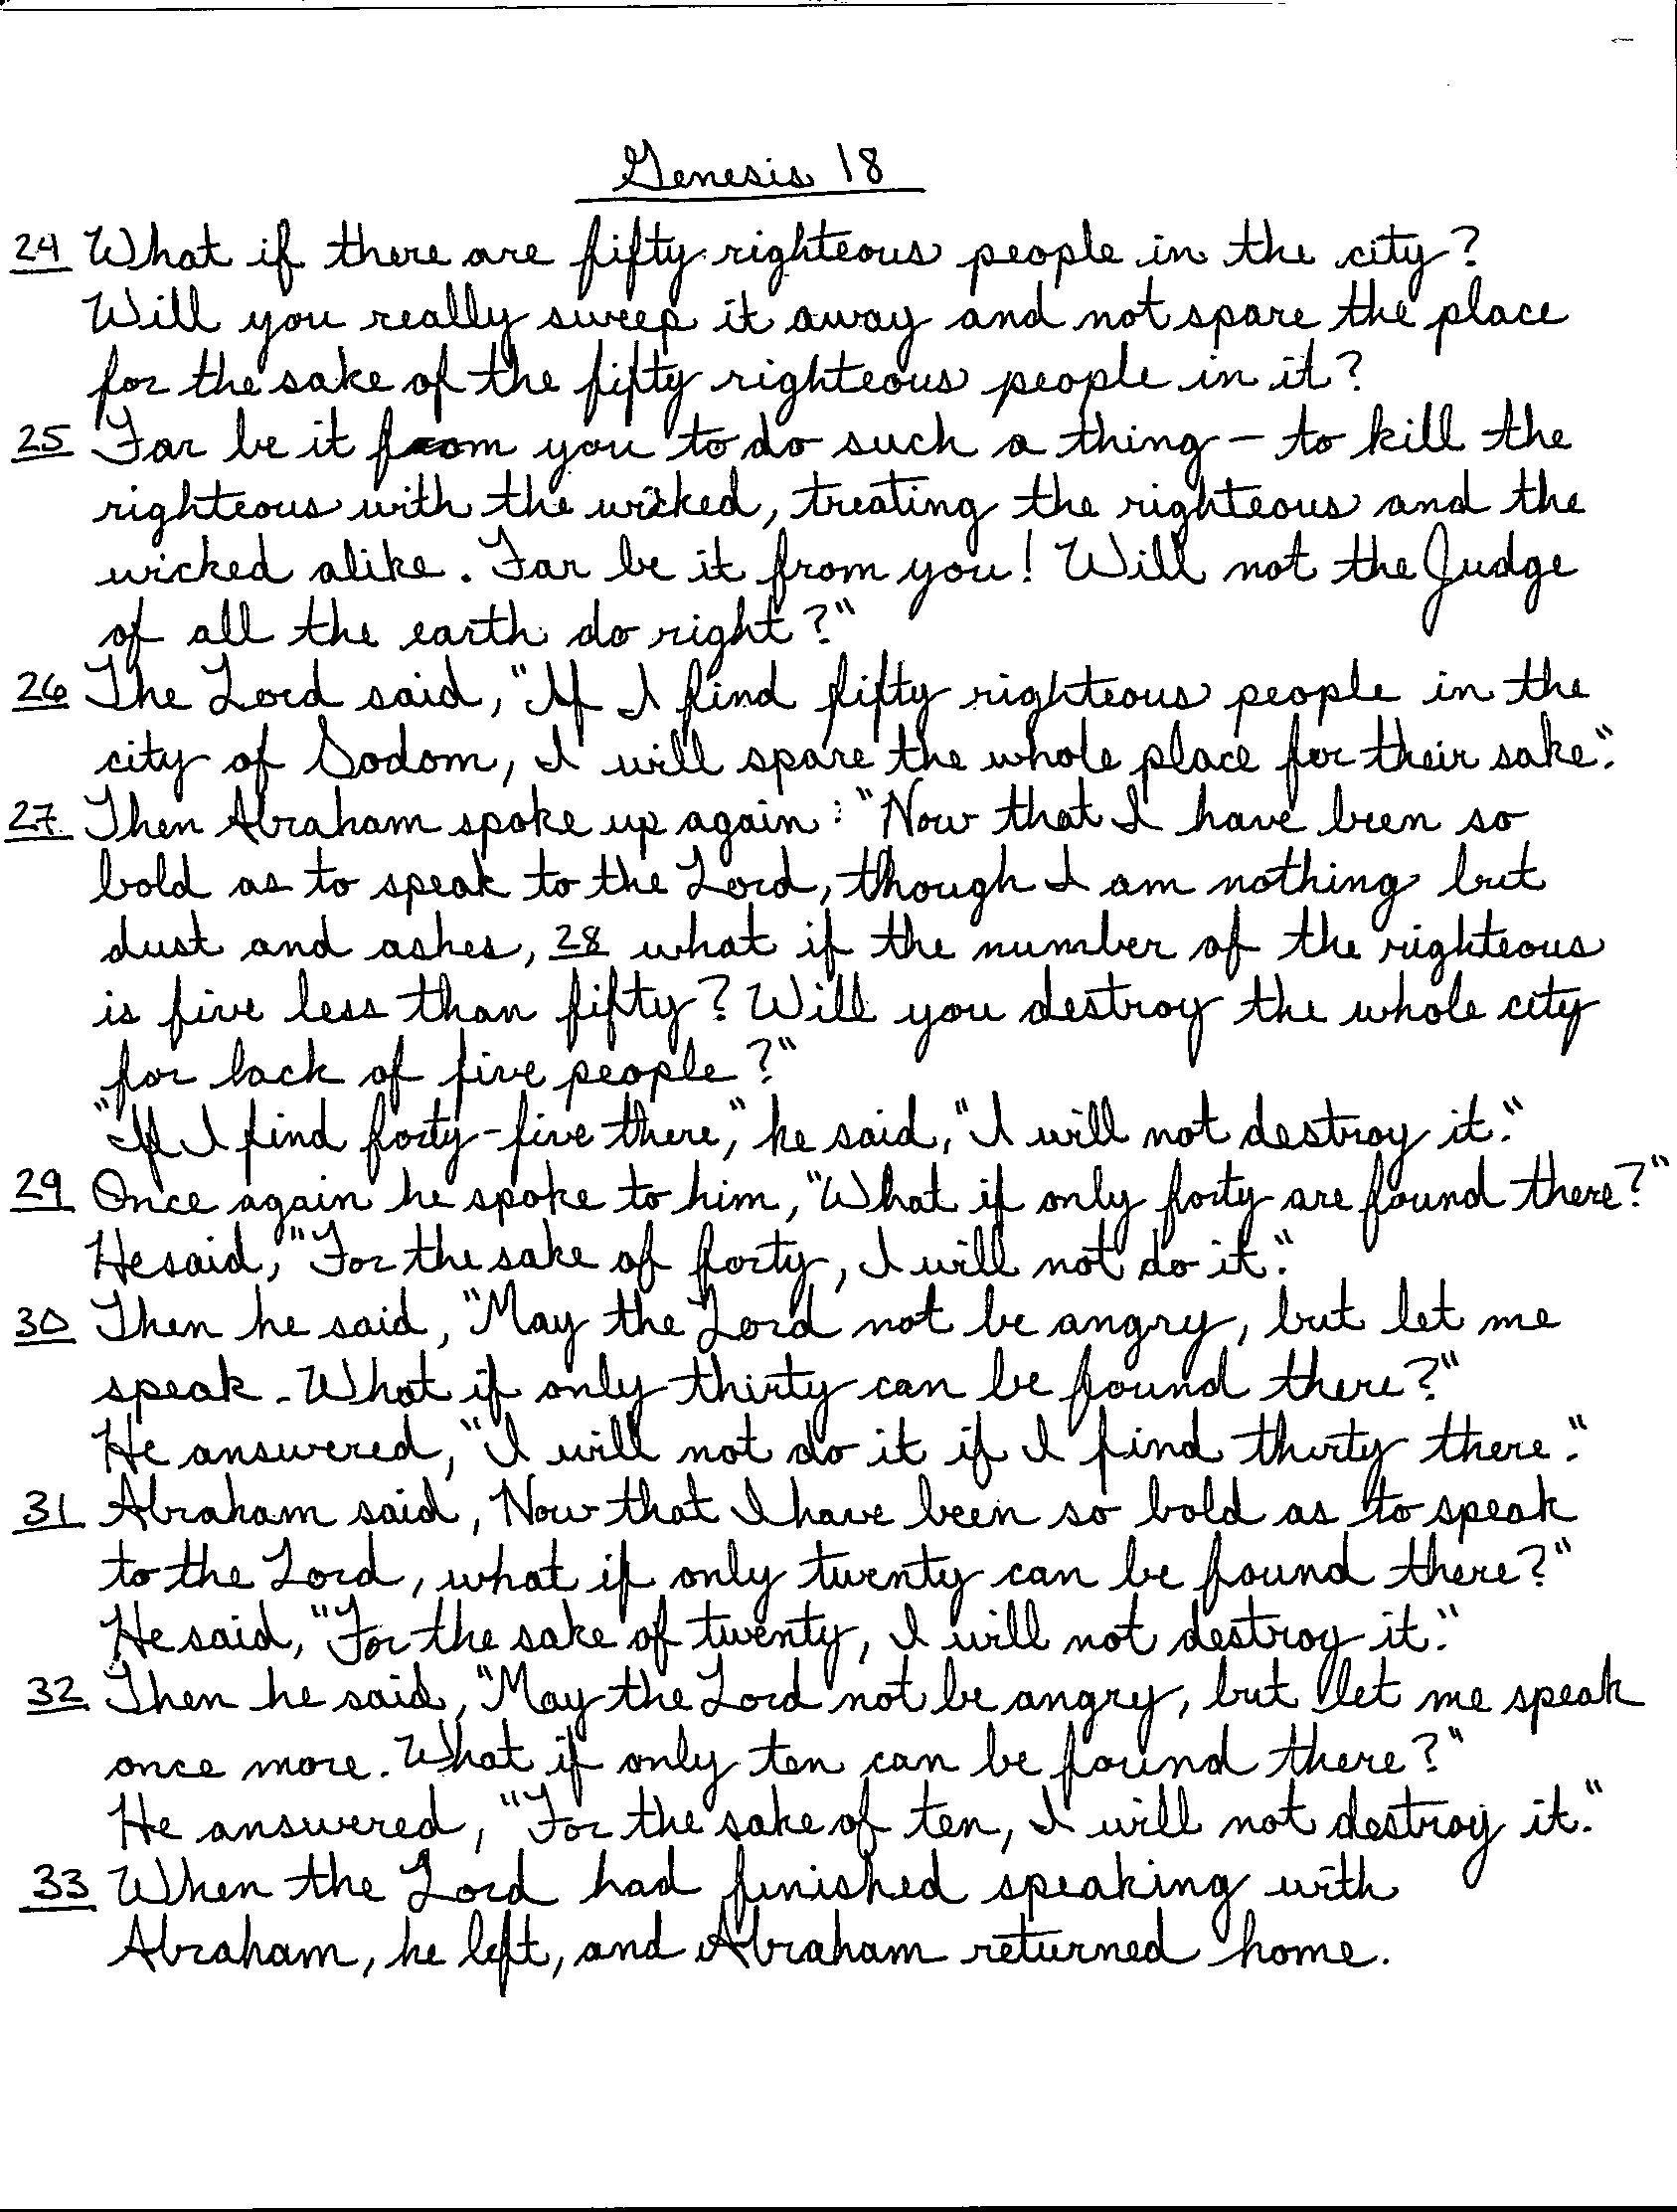 Genesis 18
24 What if there are fifty righteous people in the city?
Will you really sweep it away and not spare the place
for the sake of the fifty righteous people in it?
25 Far be it from you to do such a thing – to kill the
righteous with the wicked, treating the righteous and the
wicked alike. Far be it from you! Will not the Judge
of all the earth do right?"
26 The Lord said, "If I find fifty righteous people in the
city of Sodom, I will spare the whole place for their sake."
27 Then Abraham spoke up again: "Now that I have been so
bold as to speak to the Lord, though I am nothing but
dust and ashes, 28 what if the number of the righteous
is five less than fifty? Will you destroy the whole city
for lack of five people?"
"If I find forty-five there," he said, "I will not destroy it."
29 Once again he spoke to him, "What if only forty are found there?"
He said, "For the sake of forty, I will not do it."
30 Then he said, "May the Lord not be angry, but let me
speak. What if only thirty can be found there?"
He answered, "I will not do it if I find thirty there."
31 Abraham said, Now that I have been so bold as to speak
to the Lord, what if only twenty can be found there?"
He said, "For the sake of twenty, I will not destroy it."
32 Then he said, "May the Lord not be angry, but let me speak
once more. What if only ten can be found there?"
He answered, "For the sake of ten, I will not destroy it."
33 When the Lord had finished speaking with
Abraham, he left, and Abraham returned home.